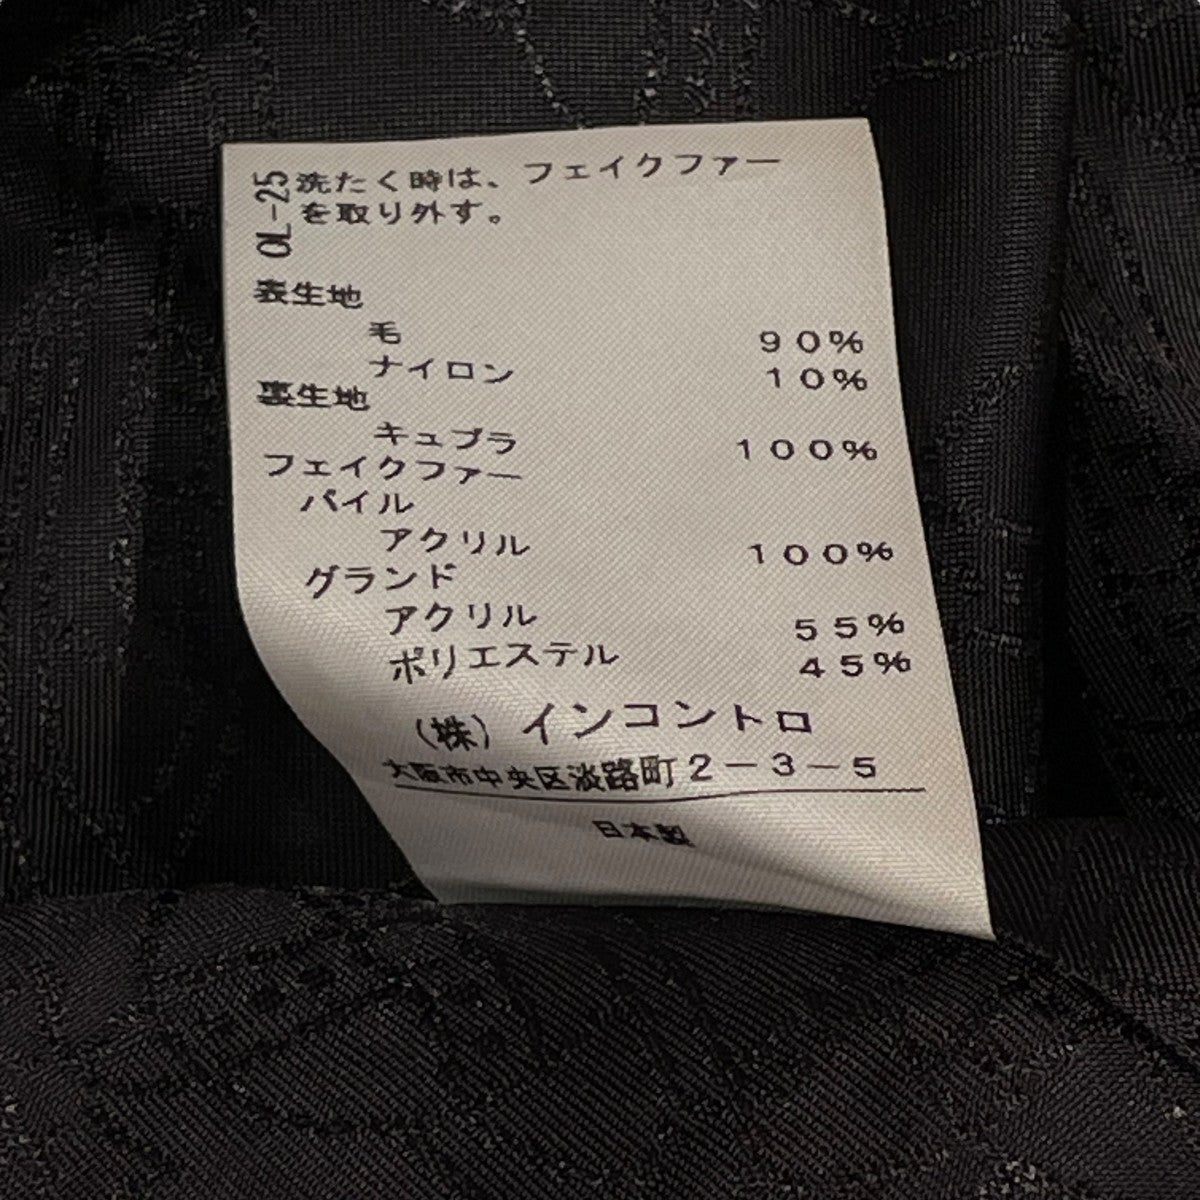 OL-25
洗たく時は、フェイクファー
を取り外す。
表生地
毛 90%
ナイロン 10%
裏生地
キュプラ 100%
フェイクファー
パイル
アクリル 100%
グランド
アクリル 55%
ポリエステル 45%
(株)インコントロ
大阪市中央区淡路町2-3-5
日本製